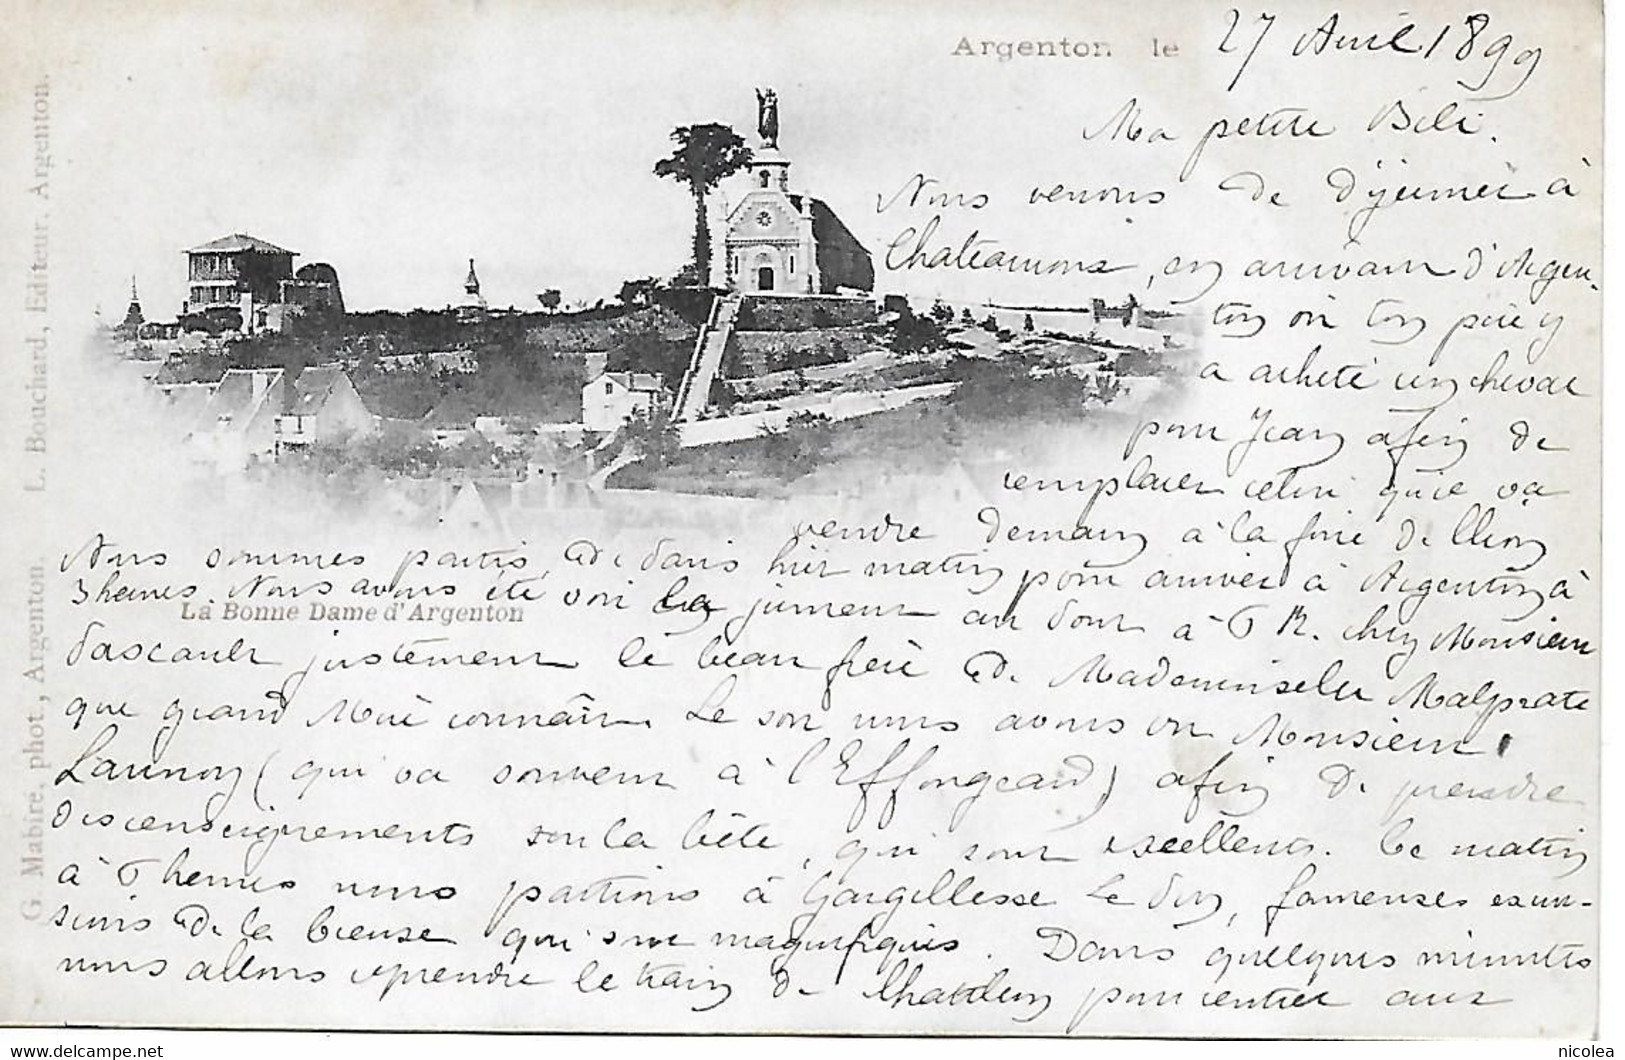 Argenton le 27 Avril 1899
Ma petite Bébé.
Nous venons de Déjeuner à
Chateauroux, en arrivant d'Argen-
ton où ton père y
a acheté un cheval
pour Jean afin de
remplacer celui qu'il va
vendre demain à la foire de
Nous sommes partis de hier matin pour arriver à Argenton à
3 heures. Nous avons été voir la jument au à 6 K. chez Monsieur
justement le beau frère de Mademoiselle Malprate
que grand Mère connaît. Le soir nous avons vu Monsieur
Launoy (qui va souvent à l'Effougeard) afin de prendre
des renseignements sur la bête, qui sont excellents. Ce matin
à 6 heures nous partions à Gargillesse Le Pin, fameuses excur-
sions de la Creuse qui sont magnifiques. Dans quelques minutes
nous allons reprendre le train de pour rentrer aux
La Bonne Dame d'Argenton
G. Mabire, phot., Argenton. L. Bouchard, Editeur, Argenton.
nicolea
delcampe.net